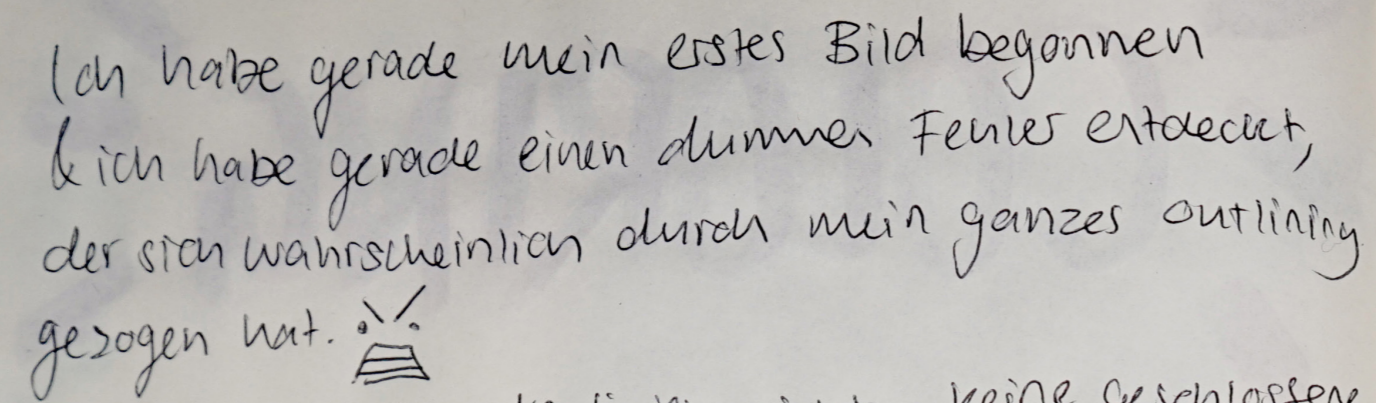 Ich habe gerade mein erstes Bild begonnen
& ich habe gerade einen dummen Fehler entdeckt,
der sich wahrscheinlich durch mein ganzes outlining
gezogen hat.
keine geschlossene